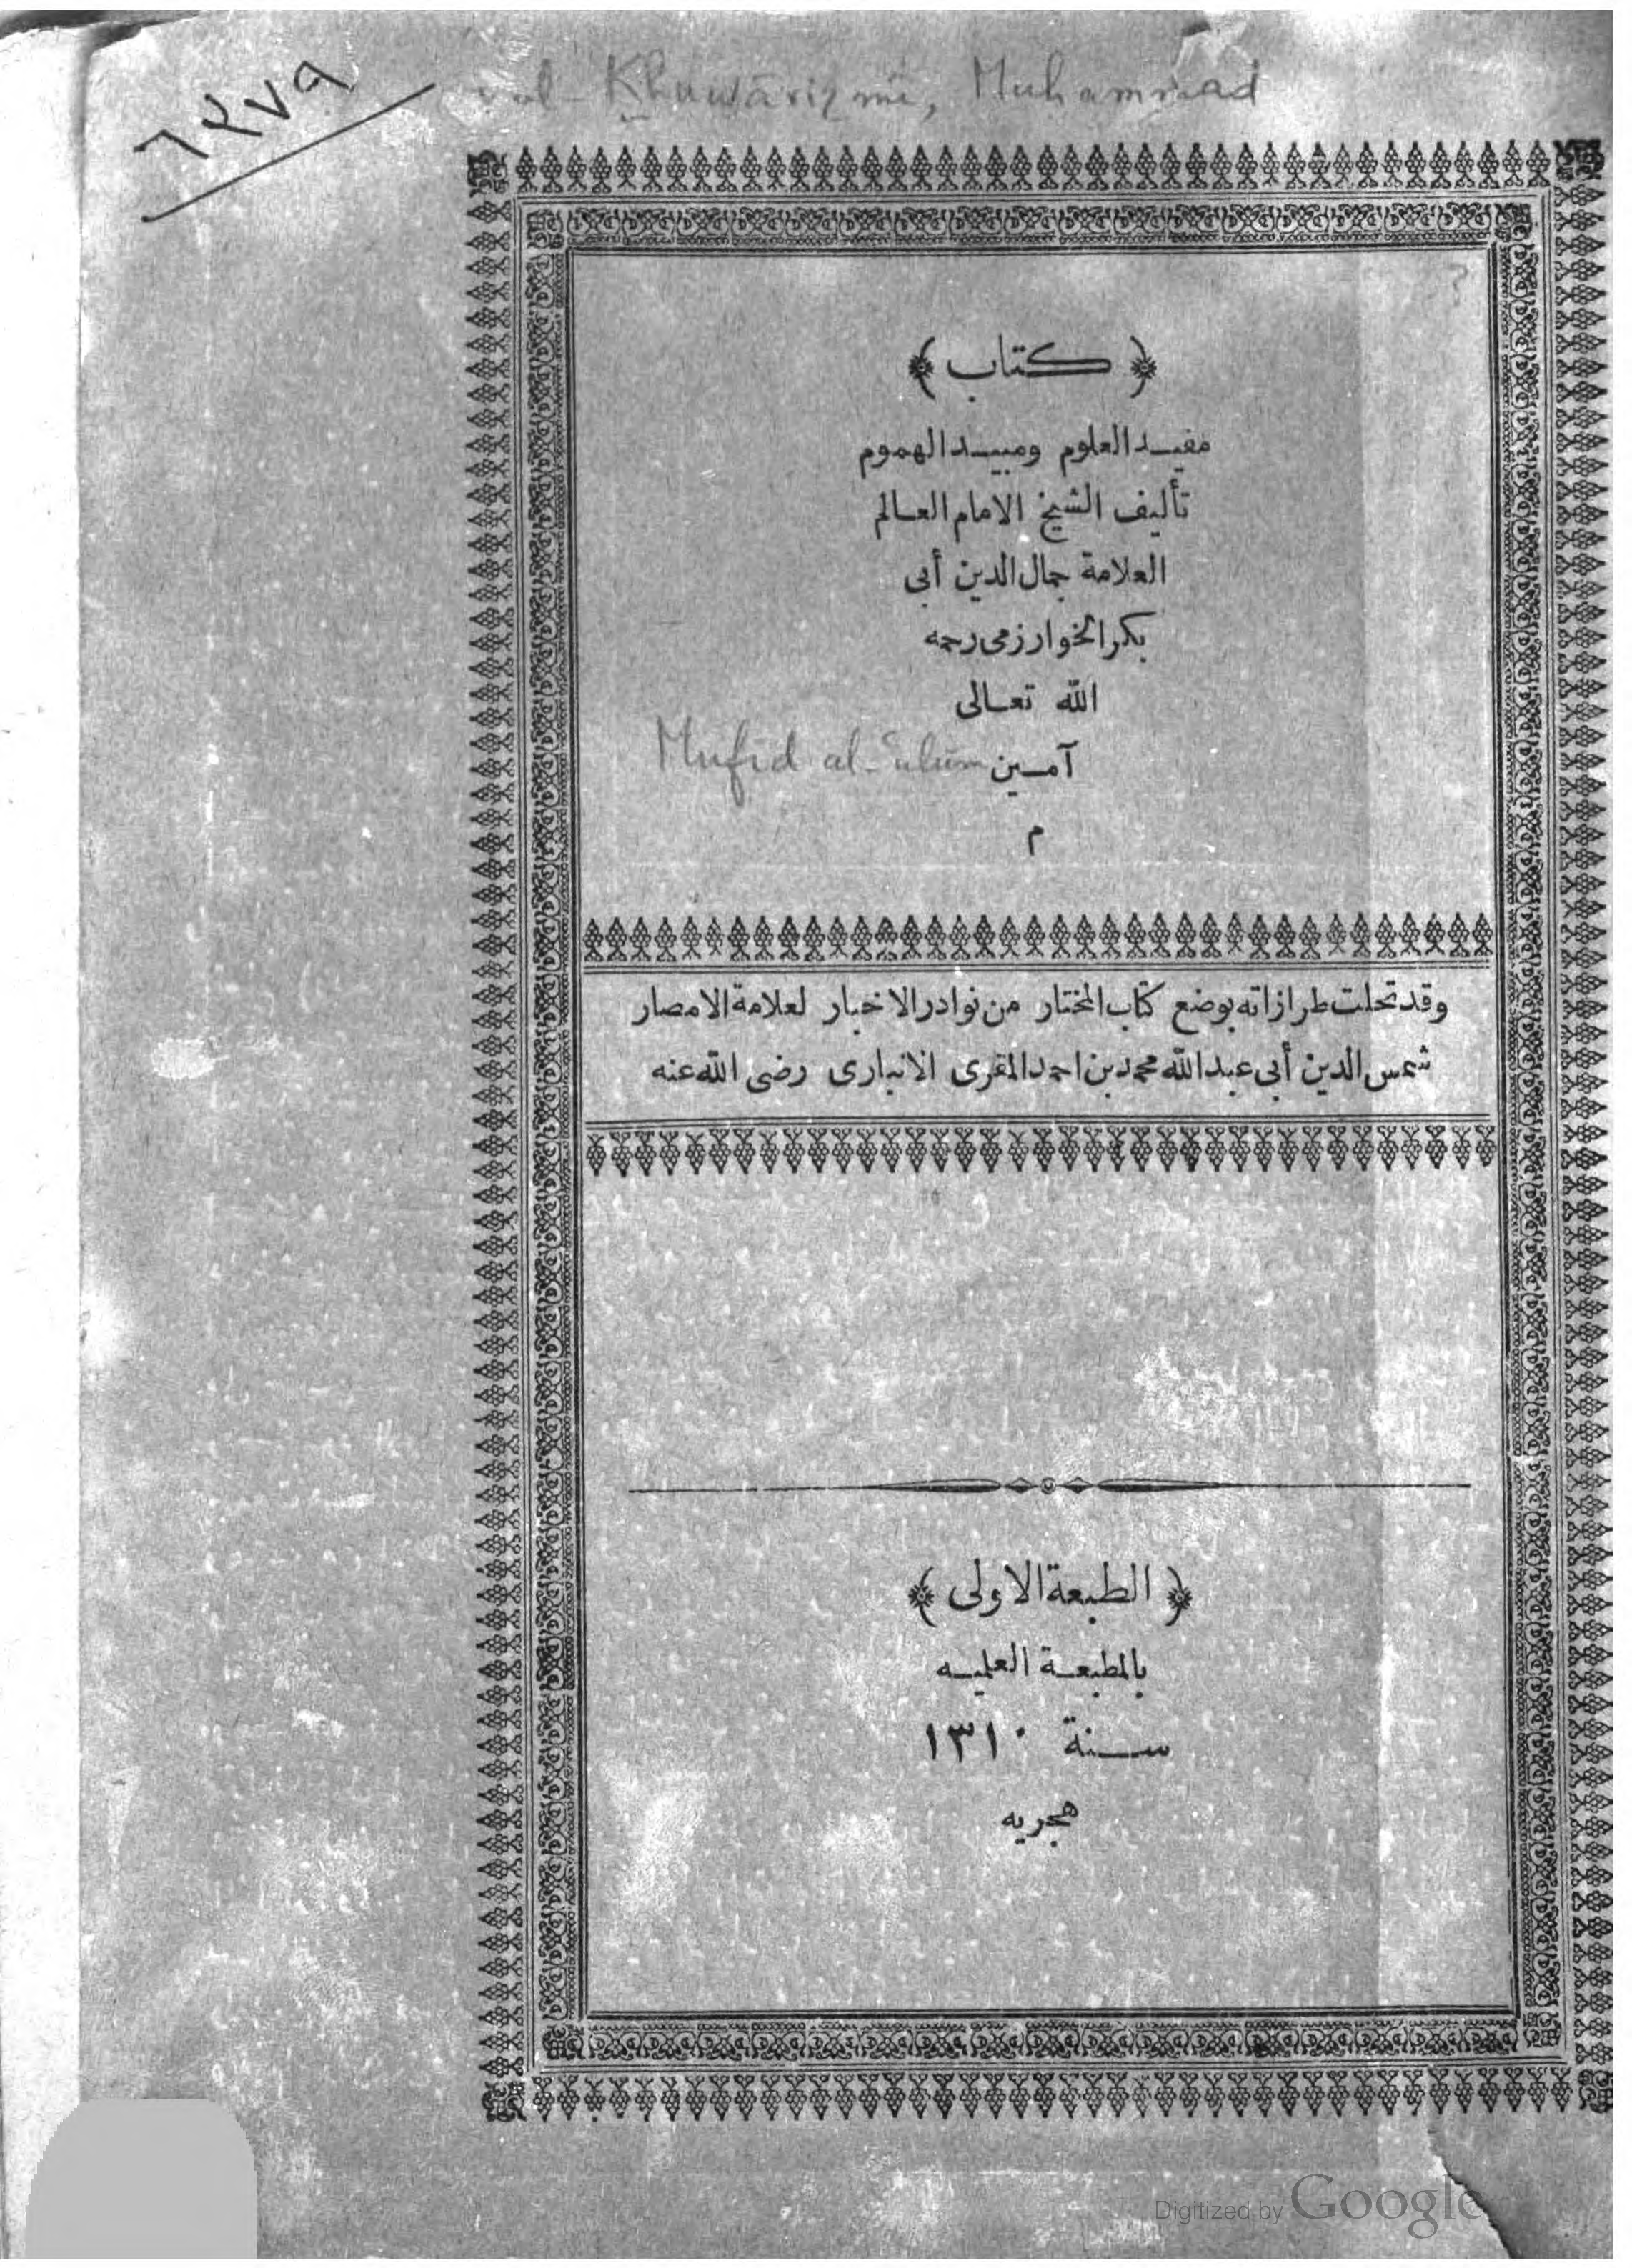 ٦٢٧٩
al-Khuwārizmī, Muhammad
﴿ كتاب ﴾
مفيد العلوم ومبيد الهموم
تأليف الشيخ الامام العالم
العلامة جمال الدين أبى
بكر الخوارزمى رحمه
الله تعالى
آمين
Mufid al-ʿulūm
م
وقد تحلت طرازاته بوضع كتاب المختار من نوادر الاخبار لعلامة الامصار
شمس الدين أبى عبد الله محمد بن احمد المقرى الانبارى رضى الله عنه
﴿ الطبعة الاولى ﴾
بالمطبعة العلميه
سنة ١٣١٠
هجريه
Digitized by Google